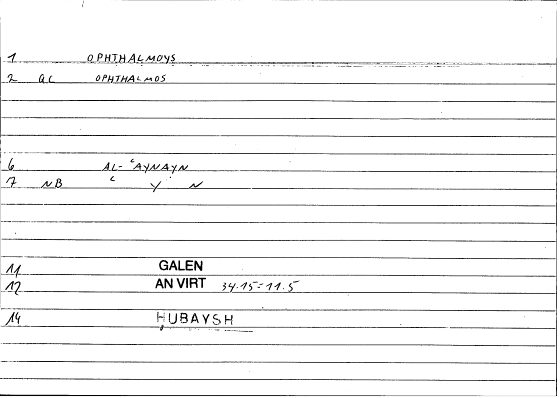 1 OPHTHALMOYS
2 GL OPHTHALMOS
6 AL-ʿAYNAYN
7 NB ʿ Y N
11 GALEN
12 AN VIRT 34.15=11.5
14 HUBAYSH